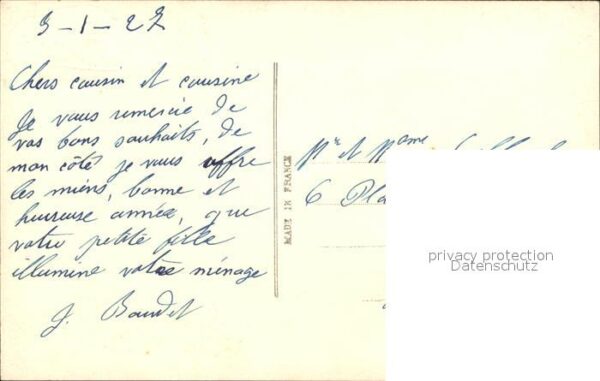 3-1-22
Chers cousin et cousine
Je vous remercie de
vos bons souhaits, de
mon côté je vous offre
les miens, bonne et
heureuse année, que
votre petite fille
illumine votre ménage
J. Baudet
MADE IN FRANCE
Mr et Mme
6 Pla
privacy protection
Datenschutz